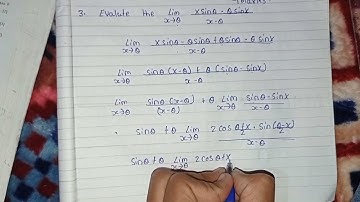 (marks)
3. Evaluate the Lim x→θ x sinθ - θ sinx / x-θ
Lim x→θ x sinθ - θsinθ + θsinθ - θ sinx / x-θ
Lim x→θ sinθ (x-θ) + θ (sinθ - sinx) / x-θ
Lim x→θ sinθ (x-θ) / (x-θ) + θ Lim x→θ sinθ - sinx / x-θ
sinθ + θ Lim x→θ 2 cos θ+x/2 · sin(θ-x/2) / x-θ
sinθ + θ Lim x→θ 2 cos θ+x